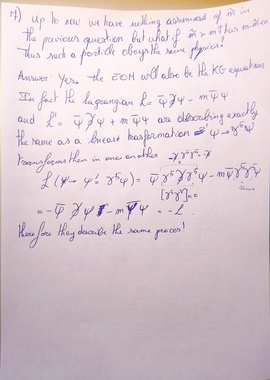 7) Up to now we have nothing assumed of m̃ in
the previous question but what if m̃ > m thus m-m̃<0
Thus such a particle obeys the same physics?
Answer Yes. the EOM will also be the KG equations
In fact the lagrangian L = ψ̄ ∂̸ ψ - m ψ̄ψ
and L' = ψ̄ ∂̸ ψ + m ψ̄ψ are describing exactly
the same as a linear trasformation ψ → γ⁵ψ
transforms them in one another
L (ψ → ψ' = γ⁵ψ) = ψ̄ γ⁵ ∂̸ γ⁵ ψ - m ψ̄ γ⁵ γ⁵ ψ
= - ψ̄ ∂̸ ψ - m ψ̄ ψ = - L
therefore they describe the same proces!